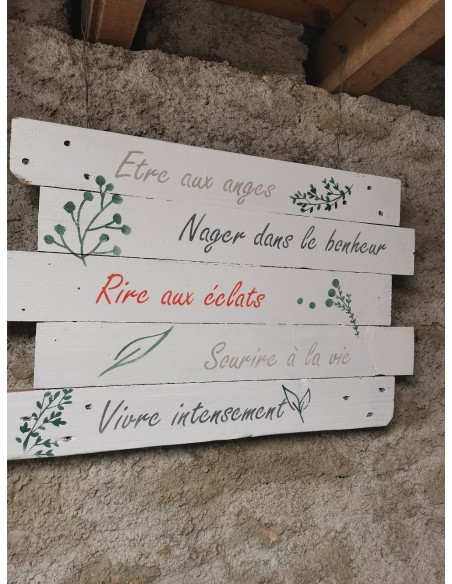 Etre aux anges
Nager dans le bonheur
Rire aux éclats
Sourire à la vie
Vivre intensement